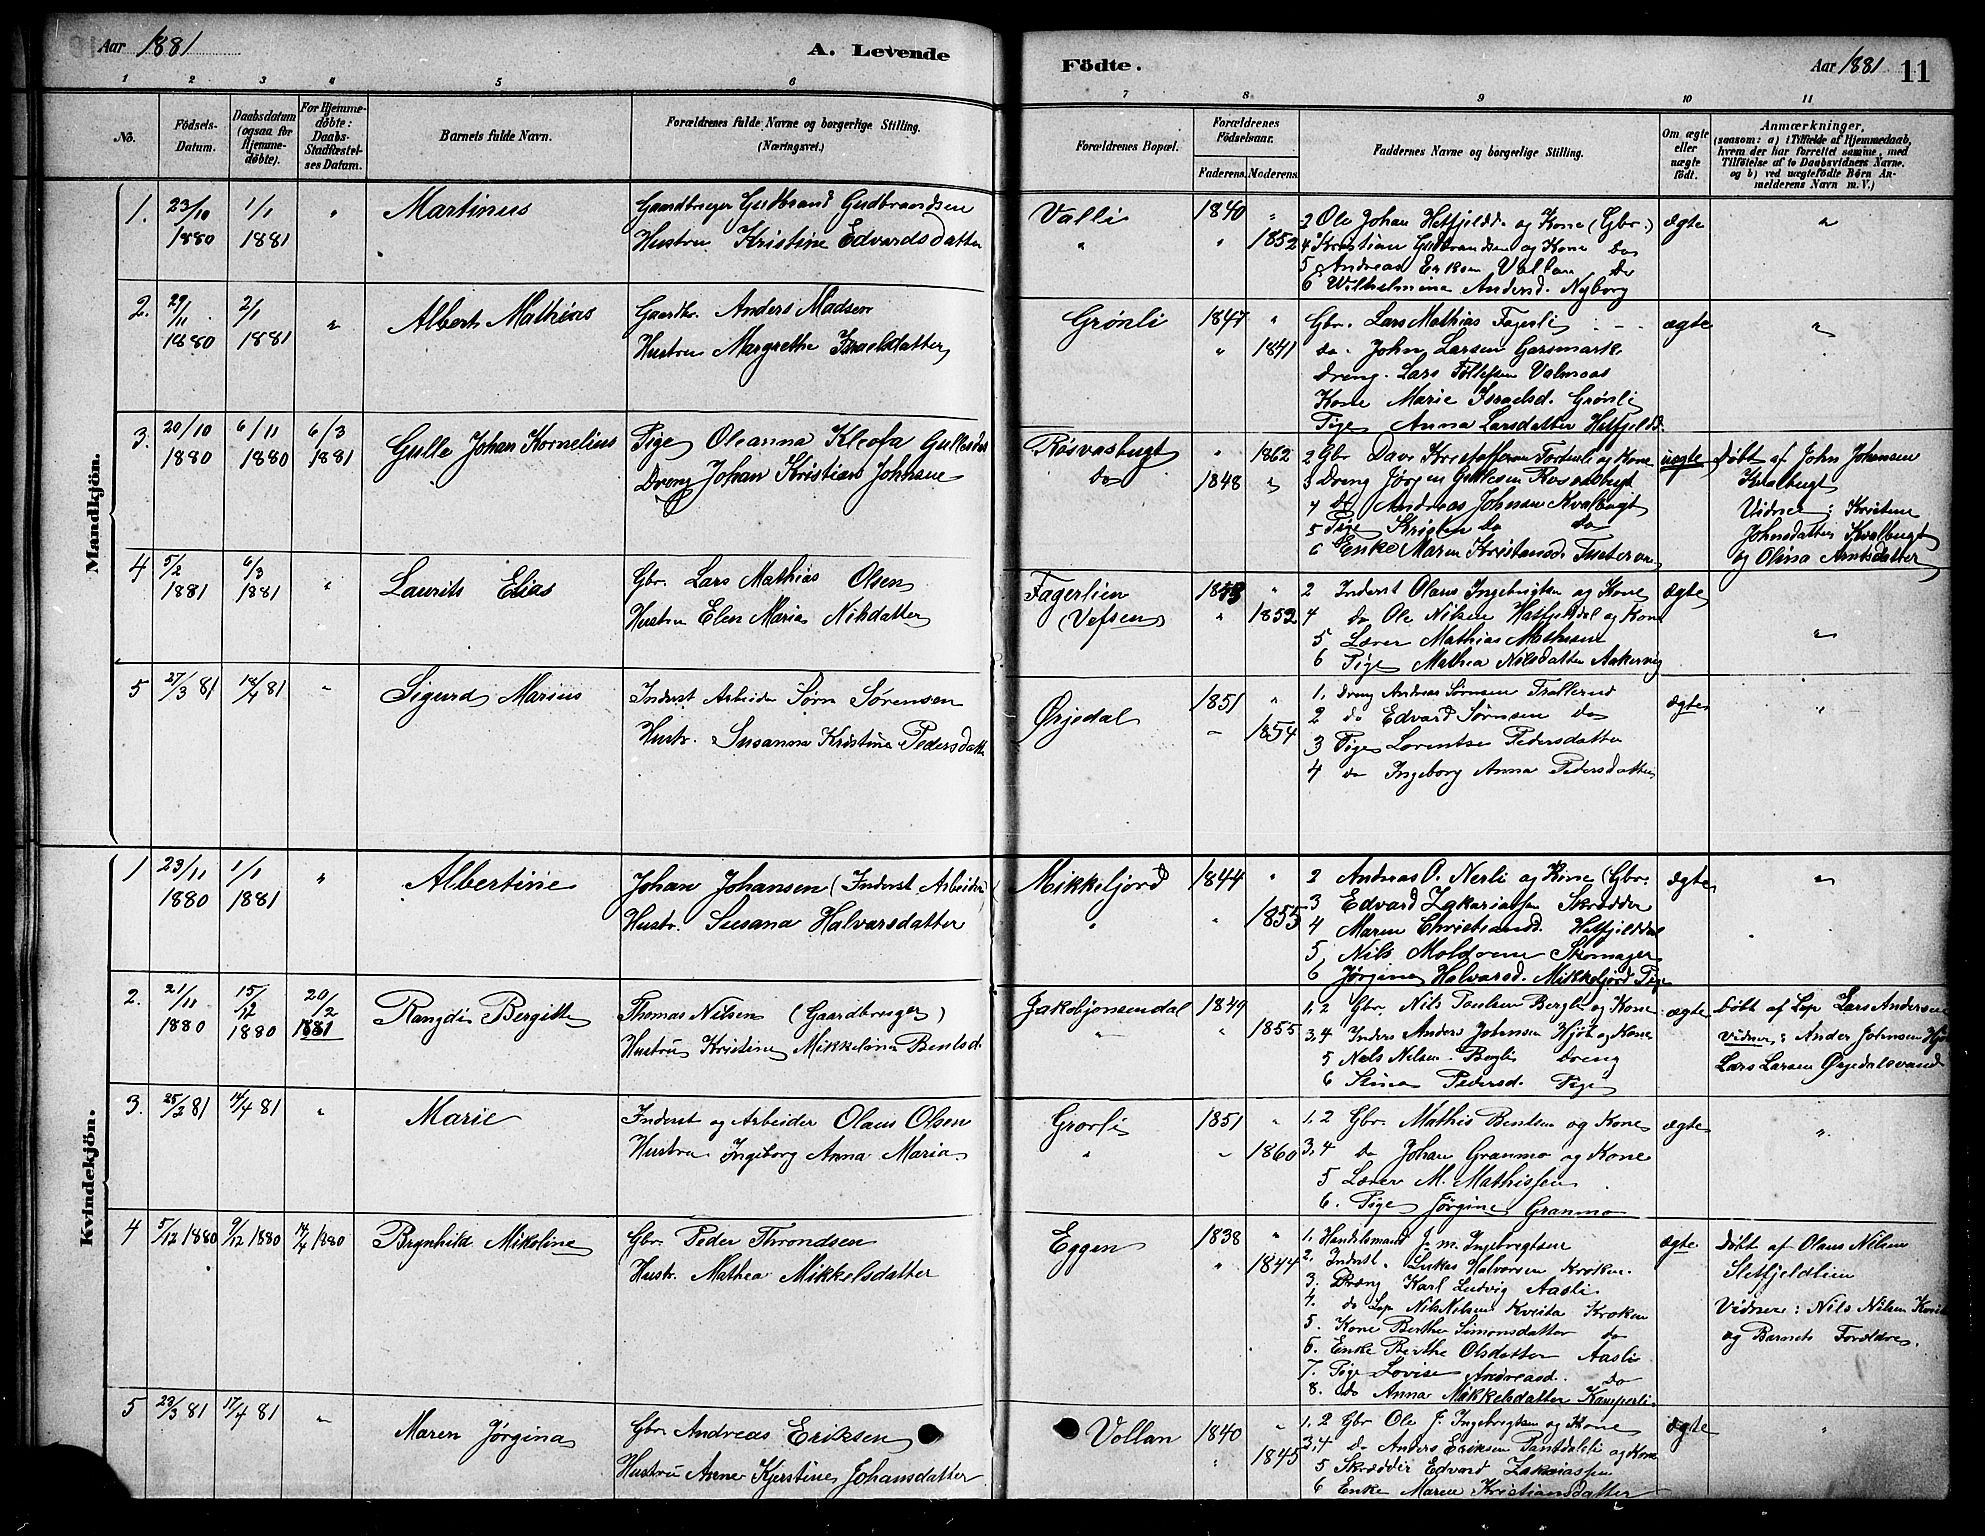 Aar 1881
A. Levende
Födte.
Aar 1881
11
1 2 3 4 5 6 7 8 9 10 11
No.
Födsels-Datum.
Daabsdatum (ogsaa for Hjemmedöbte).
For Hjemmedöbte: Daabs-Stadfæstelses Datum.
Barnets fulde Navn.
Forældrenes fulde Navne og borgerlige Stilling. (Næringsvei.)
Forældrenes Bopæl.
Forældrenes Födselsaar.
Faderens. Moderens.
Faddernes Navne og borgerlige Stilling.
Om ægte eller uægte födt.
Anmærkninger,
(saasom: a) i Tilfælde af Hjemmedaab, hvem der har forrettet samme, med Tilföielse af to Daabsvidners Navne. og b) ved uægtefödte Börn Anmelderens Navn m. V.)
Mandkjön.
1. 23/10 1880 1/1 1881 " Martinus
Gaardbruger Gudbrand Gudbrandsen
Hustru Kristine Edvardsdatter
Valli 1840 "
" " 1852
2 Ole Johan Hetfjeldd. og Kone (Gbr.) ægte "
4 Kristian Gudbrandsen og Kone do
5 Andreas Eriksen Vollan do
6 Wilhelmina Andersd. Nyborg
2. 29/11 1880 2/1 1881 " Albert Mathias
Gaardbr. Anders Madsen
Hustru Margrethe Israelsdatter
Grönli 1847 "
" 1841
Gbr. Lars Mathias Fagerli ægte "
do. John Larsen Garsmark
Dreng. Lars Tollefsen Valmoas
Kone Marie Israelsd. Grönli
Tige Anna Larsdatter Hetfjeldd.
3. 20/10 1880 6/11 1880 6/3 1881 Gulle Johan Kornelius
Pige Oleanna Kleofa Gullesdat
Dreng Johan Kristian Johnsen
Røsvasbugt " 1862
do 1848 "
2 Gbr Kristoffersen og Kone uægte
3 Dreng Jørgen Gullesen Røsvasbugt
4 do Andreas Johnsen Kvalbugt
5 Pige Kristen do do
6 Enke Maren Kristensd.
Döbt af John Johansen
Kvalbugt
Vidner: Kristine
Johnsdatter Kvalbugt
og Olina Arntsdatter
4 5/2 1881 6/3 1881 " Laurits Elias
Gbr. Lars Mathias Olsen
Hustru Elen Maria Nilsdatter
Fagerlien "
(Vefsen) " 1852
2 Inderst Olaus Ingebrigtsen og Kone ægte "
4 do Ole Nilsen Hatfjeldal og Kone
5 Lærer Mathias Mathisen
6 Pige Mathea Nilsdatter Aakervig
5 27/3 81 18/4 81 " Sigurd Marius
Inderst Arbeider Sørn Sørensen
Hustr. Susanna Kristine Pedersdatt
Ørjedal 1851 "
" 1854
1. Dreng Andreas Sørnsen ægte "
2 do Edvard Sørnsen do
3 Pige Lorentse Pedersdatter
4 do Ingeborg Anna Pedersdatter
Kvindekjön.
1 23/11 1880 1/1 1881 " Albertine
Johan Johansen (Inderst Arbeider)
Hustr. Susana Halvarsdatter
Mikkeljord 1844 "
" " 1855
2 Andreas O. Nerli og Kone (Gbr. ægte "
3 Edvard Zakariassen Skrædder
4 Maren Christiansd. Hetfjelddal
5, Nils Moldvom Skomager
6 Jørgine Halvarsd. Mikkeljord Pige
2. 21/11 1880 15/12 1880 20/2 1881 Rangdi Bergitte
Thomas Nilsen (Gaardbruger)
Hustru Kristine Mikkelina Bentsd.
Jakobjonsendal 1849 "
" " 1855
1,2 Gbr. Nils Paulsen Bergli og Kone ægte
3,4 Inders Anders Johnsen Kjöt og Kone
5 Nils Nilsen Bergli Dreng
6 Stina Pedersd. Pige
Döbt af Lap Lars Andersen
Vidner: Ander Johnsen
Lars Larsen Ørjedalsvand
3. 25/2 81 14/4 81 " Marie
Inderst og Arbeider Olaus Olsen
Hustru. Ingeborg Anna Maria
Grovli 1851 "
" " 1860
1,2 Gbr. Mathis Bentsen og Kone ægte "
3,4 do Johan Granmo og Kone
5 Lærer M. Mathissen
6. Pige Jørgine Granmo
4 5/12 1880 9/12 1880 14/4 1880 Brynhild Mikoline
Gbr. Peder Throndsen
Hustr. Mathea Mikkelsdatter
Eggen 1838 "
" 1844
1. Handelsmand J. M. Ingebrigtsen ægte
2. Inderst. Lukas Halvorsen Kroken.
3. Dreng Karl Ludvig Aasli
4. do Lap Nils Nilsen Kvista Kroken
5. Kone Berthe Simonsdatter do
6. Enke Berthe Olsdatter Aasli
7. Pige Lovise Andreasd. do
8. do Anna Mikkelsdatter Kamperli
Döbt af Olaus Nilsen
Sletfjeldlien
Vidner: Nils Nilsen
og Barnets Forældre.
5 29/3 81 17/4 81 " Maren Jørgina
Gbr. Andreas Eriksen
Hustru Anne Kjerstine Johansdatter
Vollan 1840 "
" 1845
1,2 Gbr Ole J. Ingebrigtsen og Kone ægte "
3,4 do Anders Eriksen og Kone
5 Skrædder Edvard Zakariassen
6 Enke Maren Kristiansdatter